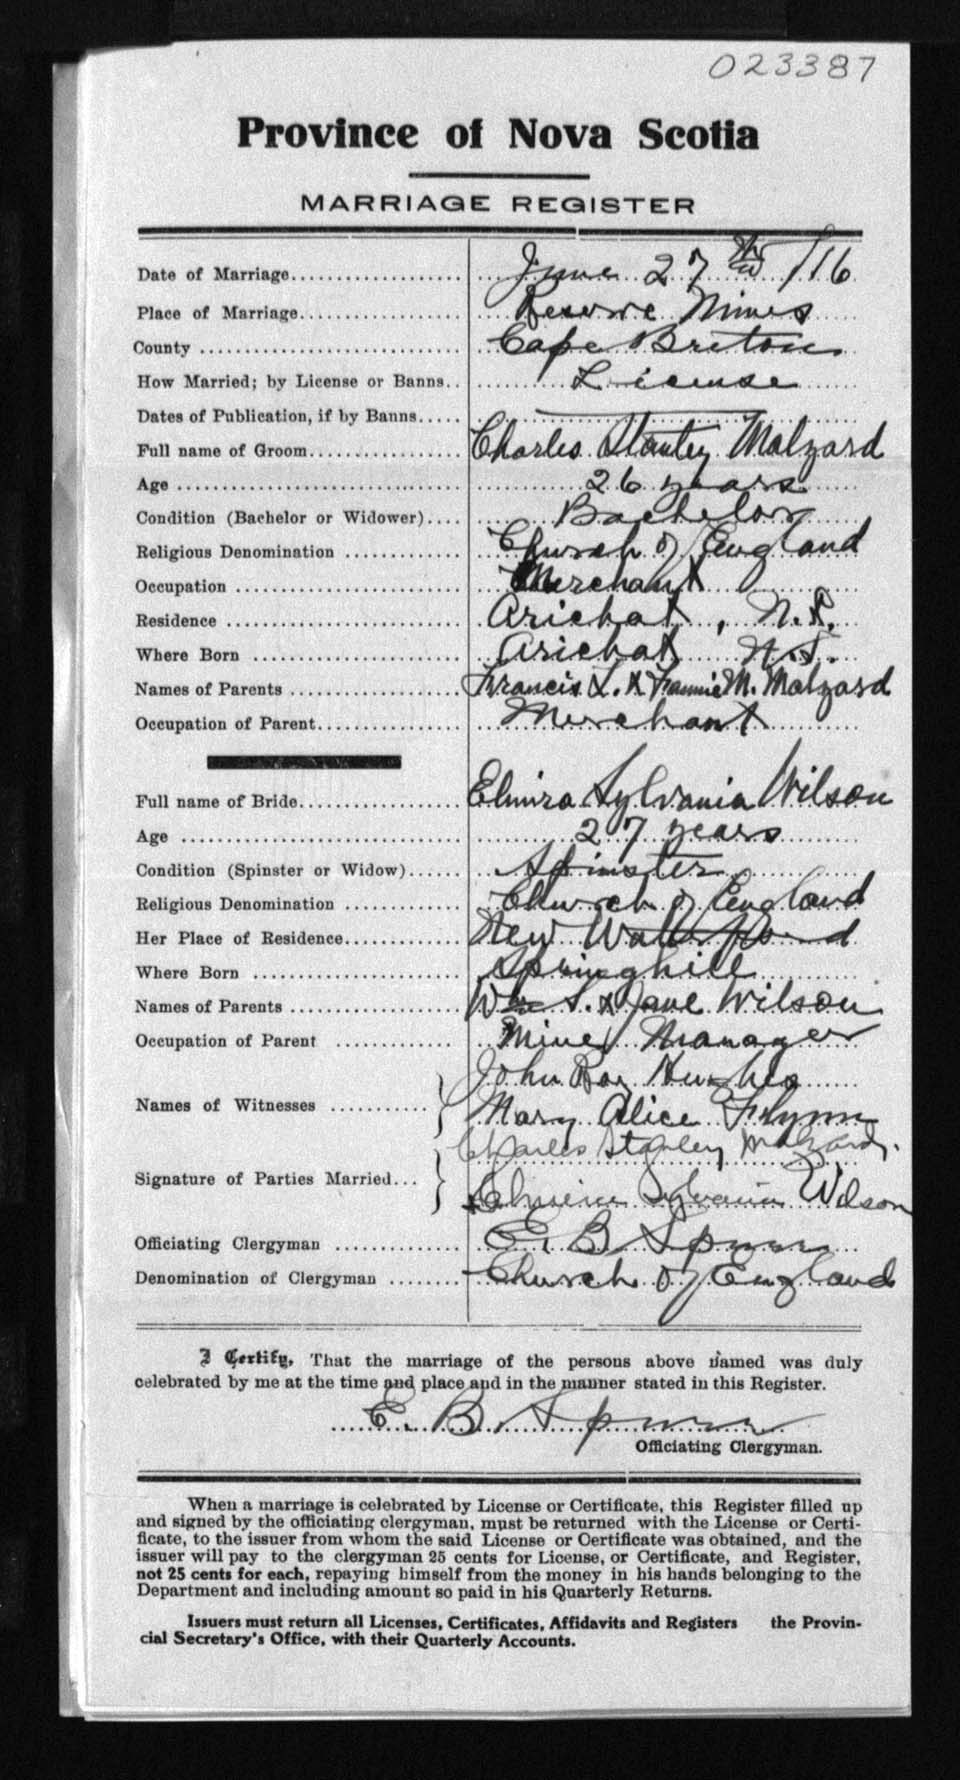 023387
Province of Nova Scotia
MARRIAGE REGISTER
Date of Marriage June 27th /16
Place of Marriage Reserve Mines
County Cape Breton
How Married; by License or Banns License
Dates of Publication, if by Banns
Full name of Groom Charles Stanley Malzard
Age 26 years
Condition (Bachelor or Widower) Bachelor
Religious Denomination Church of England
Occupation Merchant
Residence Arichat, N.S.
Where Born Arichat N.S.
Names of Parents Francis L. & Fannie M. Malzard
Occupation of Parent Merchant
Full name of Bride Elmira Sylvania Wilson
Age 27 years
Condition (Spinster or Widow) Spinster
Religious Denomination Church of England
Her Place of Residence New Waterford
Where Born Springhill
Names of Parents Wm S. & Jane Wilson
Occupation of Parent Mine Manager
Names of Witnesses John Roy Hughes
Mary Alice Flynn
Signature of Parties Married Charles Stanley Malzard.
Sylvania Wilson
Officiating Clergyman E. B. Spurr
Denomination of Clergyman Church of England
I Certify, That the marriage of the persons above named was duly
celebrated by me at the time and place and in the manner stated in this Register.
E. B. Spurr
Officiating Clergyman.
When a marriage is celebrated by License or Certificate, this Register filled up
and signed by the officiating clergyman, must be returned with the License or Certi-
ficate, to the issuer from whom the said License or Certificate was obtained, and the
issuer will pay to the clergyman 25 cents for License, or Certificate, and Register,
not 25 cents for each, repaying himself from the money in his hands belonging to the
Department and including amount so paid in his Quarterly Returns.
Issuers must return all Licenses, Certificates, Affidavits and Registers the Provin-
cial Secretary's Office, with their Quarterly Accounts.